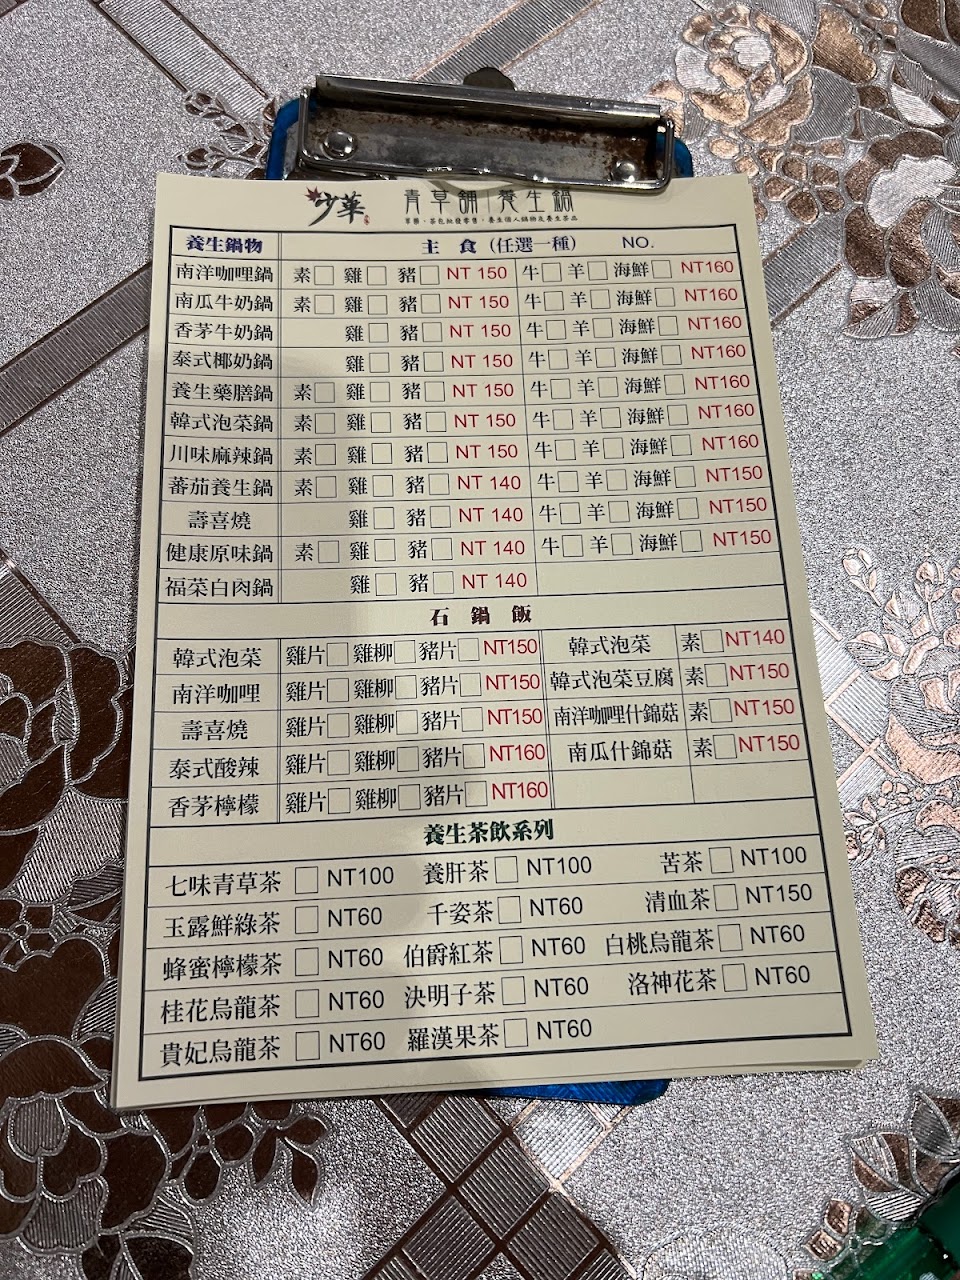 少華 青草舖 養生鍋
草藥、茶包批發零售，養生個人鍋物及養生茶品
養生鍋物 主 食 (任選一種) NO.
南洋咖哩鍋 素□ 雞□ 豬□ NT 150 牛□ 羊□ 海鮮□ NT160
南瓜牛奶鍋 素□ 雞□ 豬□ NT 150 牛□ 羊□ 海鮮□ NT160
香茅牛奶鍋 雞□ 豬□ NT 150 牛□ 羊□ 海鮮□ NT160
泰式椰奶鍋 雞□ 豬□ NT 150 牛□ 羊□ 海鮮□ NT160
養生藥膳鍋 素□ 雞□ 豬□ NT 150 牛□ 羊□ 海鮮□ NT160
韓式泡菜鍋 素□ 雞□ 豬□ NT 150 牛□ 羊□ 海鮮□ NT160
川味麻辣鍋 素□ 雞□ 豬□ NT 150 牛□ 羊□ 海鮮□ NT160
蕃茄養生鍋 素□ 雞□ 豬□ NT 140 牛□ 羊□ 海鮮□ NT150
壽喜燒 雞□ 豬□ NT 140 牛□ 羊□ 海鮮□ NT150
健康原味鍋 素□ 雞□ 豬□ NT 140 牛□ 羊□ 海鮮□ NT150
福菜白肉鍋 雞□ 豬□ NT 140
石 鍋 飯
韓式泡菜 雞片□ 雞柳□ 豬片□ NT150 韓式泡菜 素□ NT140
南洋咖哩 雞片□ 雞柳□ 豬片□ NT150 韓式泡菜豆腐 素□ NT150
壽喜燒 雞片□ 雞柳□ 豬片□ NT150 南洋咖哩什錦菇 素□ NT150
泰式酸辣 雞片□ 雞柳□ 豬片□ NT160 南瓜什錦菇 素□ NT150
香茅檸檬 雞片□ 雞柳□ 豬片□ NT160
養生茶飲系列
七味青草茶 □ NT100 養肝茶 □ NT100 苦茶 □ NT100
玉露鮮綠茶 □ NT60 千姿茶 □ NT60 清血茶 □ NT150
蜂蜜檸檬茶 □ NT60 伯爵紅茶 □ NT60 白桃烏龍茶 □ NT60
桂花烏龍茶 □ NT60 決明子茶 □ NT60 洛神花茶 □ NT60
貴妃烏龍茶 □ NT60 羅漢果茶 □ NT60